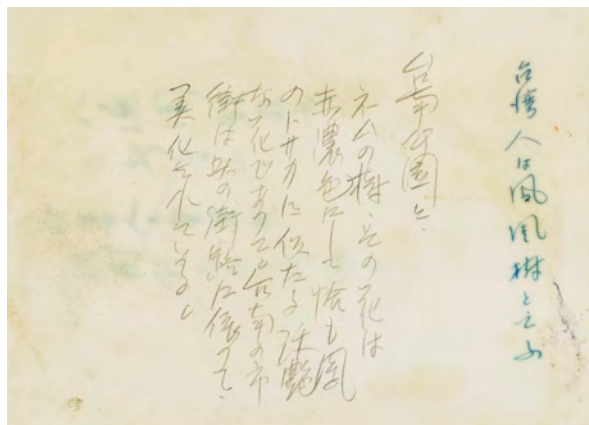 台湾人は鳳凰樹と云ふ
台南公園と
ネムの樹、その花は
赤濃色にして恰も鳳
のトサカに似たる妖艶
な花であつて台南の市
街は此の街路に依つて
美化されている